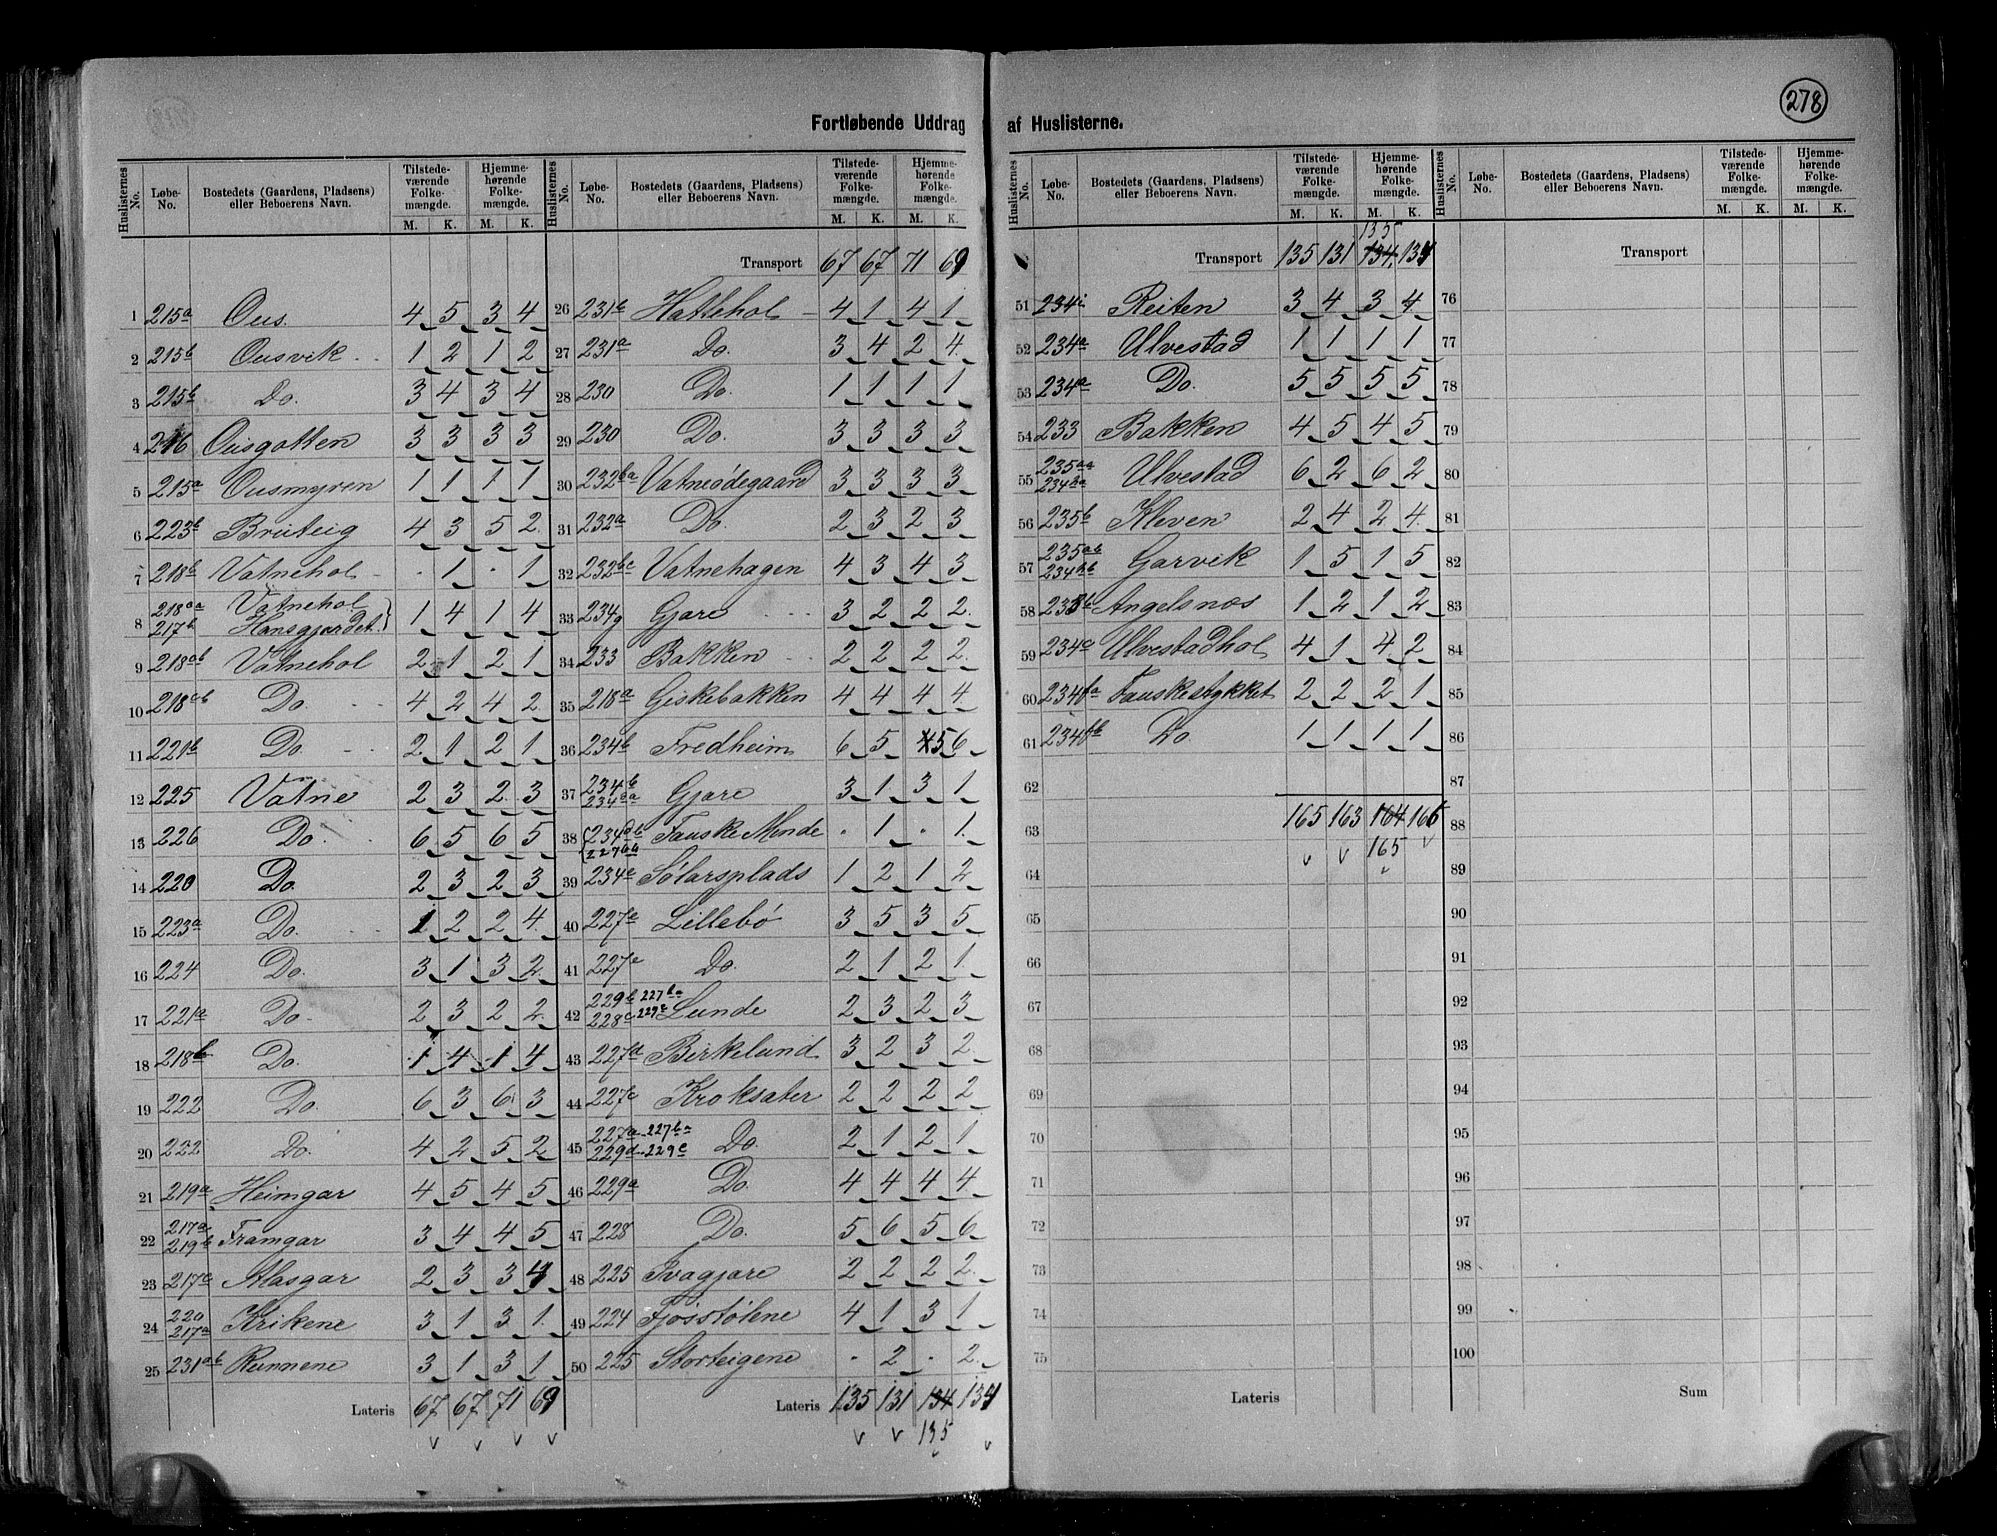 278
Fortløbende Uddrag af Huslisterne.
Huslisternes No. | Løbe-No. | Bostedets (Gaardens, Pladsens) eller Beboerens Navn. | Tilstedeværende Folkemængde. M. K. | Hjemmehørende Folkemængde. M. K.
1 215a Ous. 4 5 3 4
2 215b Ousvik 1 2 1 2
3 215b Do. 3 4 3 4
4 216 Ousgotten 3 3 3 3
5 215a Ousmyren 1 1 1 1
6 223b Bruteig 4 3 5 2
7 218b Vatnehol . 1 . 1
8 218aa 217b Vatnehol Hansgjerdet 1 4 1 4
9 218ab Vatnehol 2 1 2 1
10 218ab Do. 4 2 4 2
11 221b Do. 2 1 2 1
12 225 Vatne 2 3 2 3
13 226 Do. 6 5 6 5
14 220 Do. 2 3 2 3
15 223a Do. 1 2 2 4
16 224 Do. 3 1 3 2
17 221a Do. 2 3 2 2
18 218b Do. 1 4 1 4
19 222 Do. 6 3 6 3
20 222 Do. 4 2 5 2
21 219a Heimgar 4 5 4 5
22 217a 219b Framgar 3 4 4 5
23 217c Alasgar 2 3 3 4
24 220 217a Krikene 3 1 3 1
25 231ab Runnene 3 1 3 1
Lateris 67 67 71 69
Huslisternes No. | Løbe-No. | Bostedets (Gaardens, Pladsens) eller Beboerens Navn. | Tilstedeværende Folkemængde. M. K. | Hjemmehørende Folkemængde. M. K.
Transport 67 67 71 69
26 231b Hattehol 4 1 4 1
27 231a Do. 3 4 2 4
28 230 Do. 1 1 1 1
29 230 Do. 3 3 3 3
30 232ba Vatneødegaard 3 3 3 3
31 232a Do. 2 3 2 3
32 232bc Vatnehagen 4 3 4 3
33 234g Gjære 3 2 2 2
34 233 Bakken 2 2 2 2
35 218a Giskebakken 4 4 4 4
36 234b Fredheim 6 5 5 6
37 234b 234aa Gjære 3 1 3 1
38 234db 227bb Fauske Minde . 1 . 1
39 234e Sølarsplads 1 2 1 2
40 227e Lillebø 3 5 3 5
41 227e Do. 2 1 2 1
42 229b 227ba 228c 229c Lunde 2 3 2 3
43 227a Birkelund 3 2 3 2
44 227c Kroksæter 2 2 2 2
45 227a 227ba 229d 229c Do. 2 1 2 1
46 229a Do. 4 4 4 4
47 228 Do. 5 6 5 6
48 225 Svagjære 2 2 2 2
49 224 Fjøsstølene 4 1 3 1
50 225 Storteigene . 2 . 2
Lateris 135 131 134 134
135
Huslisternes No. | Løbe-No. | Bostedets (Gaardens, Pladsens) eller Beboerens Navn. | Tilstedeværende Folkemængde. M. K. | Hjemmehørende Folkemængde. M. K.
135
Transport 135 131 134 134
51 234i Reiten 3 4 3 4
52 234a Ulvestad 1 1 1 1
53 234a Do. 5 5 5 5
54 233 Bakken 4 5 4 5
55 235aa 234ha Ulvestad 6 2 6 2
56 235b Kleven 2 4 2 4
57 235ab 234hb Garvik 1 5 1 5
58 Angelsnæs 1 2 1 2
59 234c Ulvestadhol 4 1 4 2
60 234fa Fauskestykket 2 2 2 1
61 234fb Do. 1 1 1 1
62
63 165 163 164 166
165
64
65
66
67
68
69
70
71
72
73
74
75
Lateris
Huslisternes No. | Løbe-No. | Bostedets (Gaardens, Pladsens) eller Beboerens Navn. | Tilstedeværende Folkemængde. M. K. | Hjemmehørende Folkemængde. M. K.
Transport
76
77
78
79
80
81
82
83
84
85
86
87
88
89
90
91
92
93
94
95
96
97
98
99
100
Sum